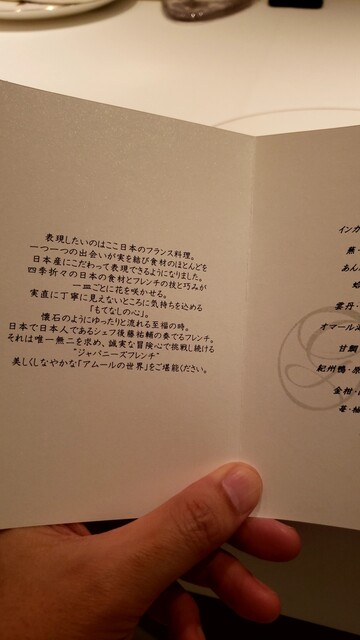 表現したいのはここ日本のフランス料理。
一つ一つの出会いが実を結び食材のほとんどを
日本産にこだわって表現できるようになりました。
四季折々の日本の食材とフレンチの技と巧みが
一皿ごとに花を咲かせる。
実直に丁寧に見えないところに気持ちを込める
「もてなしの心」。
懐石のようにゆったりと流れる至福の時。
日本で日本人であるシェフ後藤祐輔の奏でるフレンチ。
それは唯一無二を求め、誠実な冒険心で挑戦し続ける
"ジャパニーズフレンチ"
美しくしなやかな「アムールの世界」をご堪能ください。
インカ
蕪・
あん
蛤
雲丹・
オマール
甘鯛
紀州鴨・原
金柑・
苺・柚